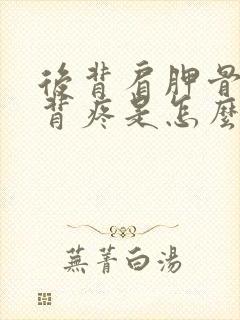 後背肩胛骨
背疼是怎麼
蕪菁白湯